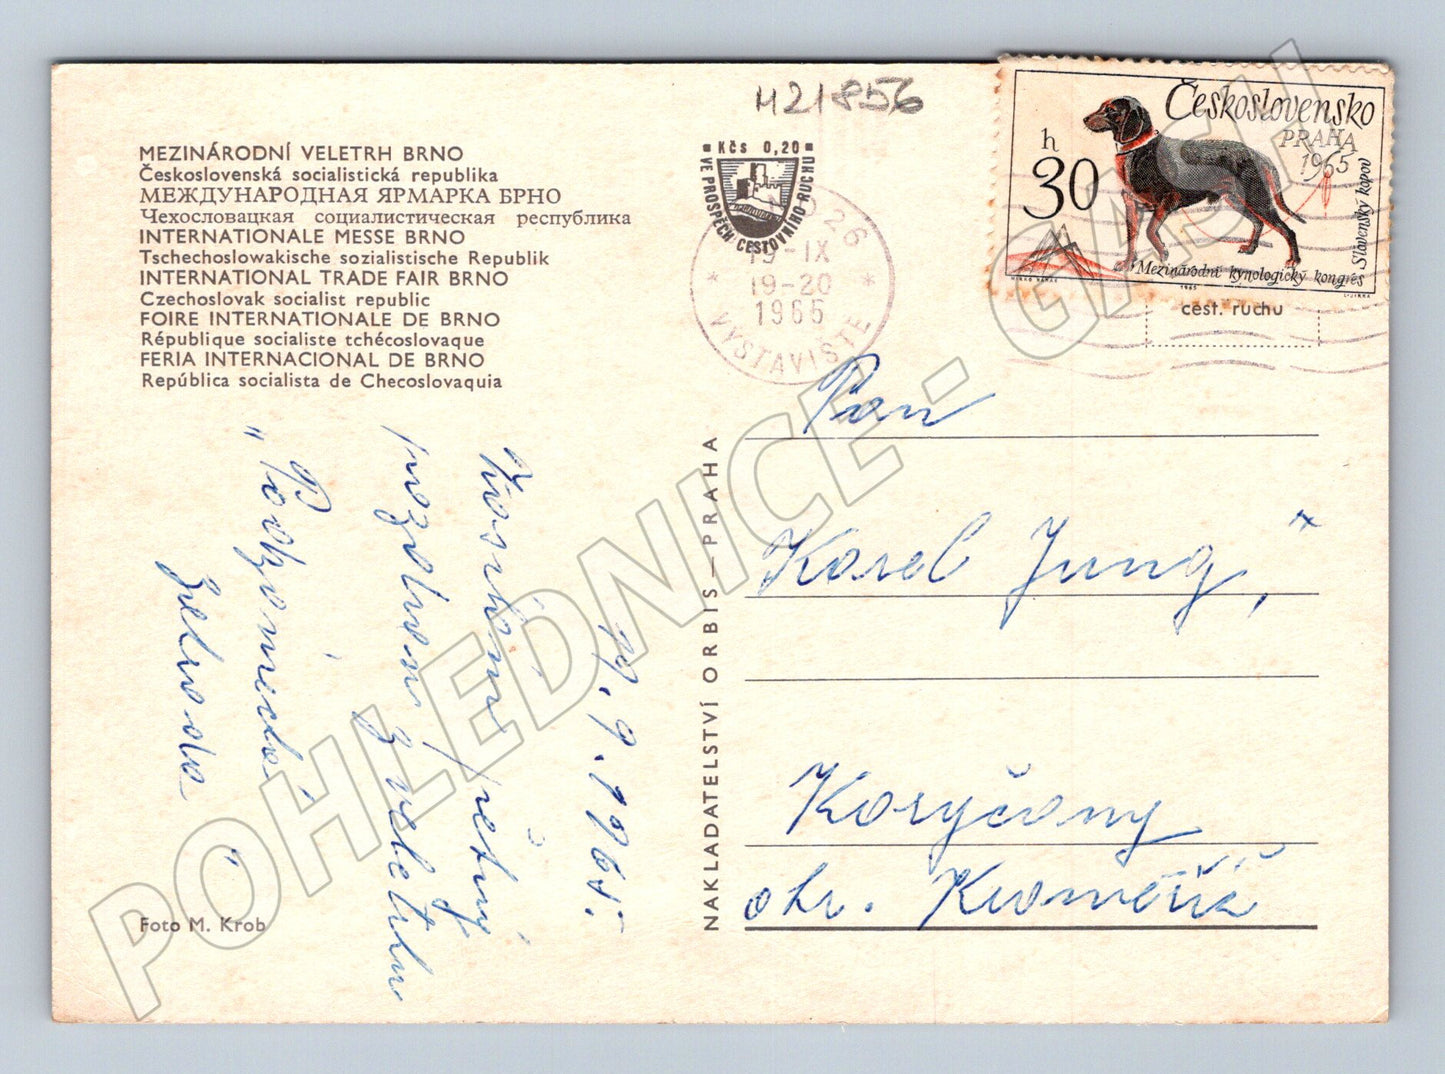 M21856
MEZINÁRODNÍ VELETRH BRNO
Československá socialistická republika
МЕЖДУНАРОДНАЯ ЯРМАРКА БРНО
Чехословацкая социалистическая республика
INTERNATIONALE MESSE BRNO
Tschechoslowakische sozialistische Republik
INTERNATIONAL TRADE FAIR BRNO
Czechoslovak socialist republic
FOIRE INTERNATIONALE DE BRNO
République socialiste tchécoslovaque
FERIA INTERNACIONAL DE BRNO
República socialista de Checoslovaquia
Kčs 0,20
VE PROSPĚCH CESTOVNÍHO RUCHU
NO 26
19-IX
19-20
1965
VÝSTAVIŠTĚ
Československo
PRAHA
1965
h
30
Slovenský kopov
Mezinárodní kynologický kongres
1965
cest. ruchu
19. 9. 1965.
Srdečný
pozdrav z veletrhu
Zelivoda
Pan
Karel Jung,
Koryčany
okr. Kroměříž
NAKLADATELSTVÍ ORBIS – PRAHA
Foto M. Krob
POHLEDNICE - CASH